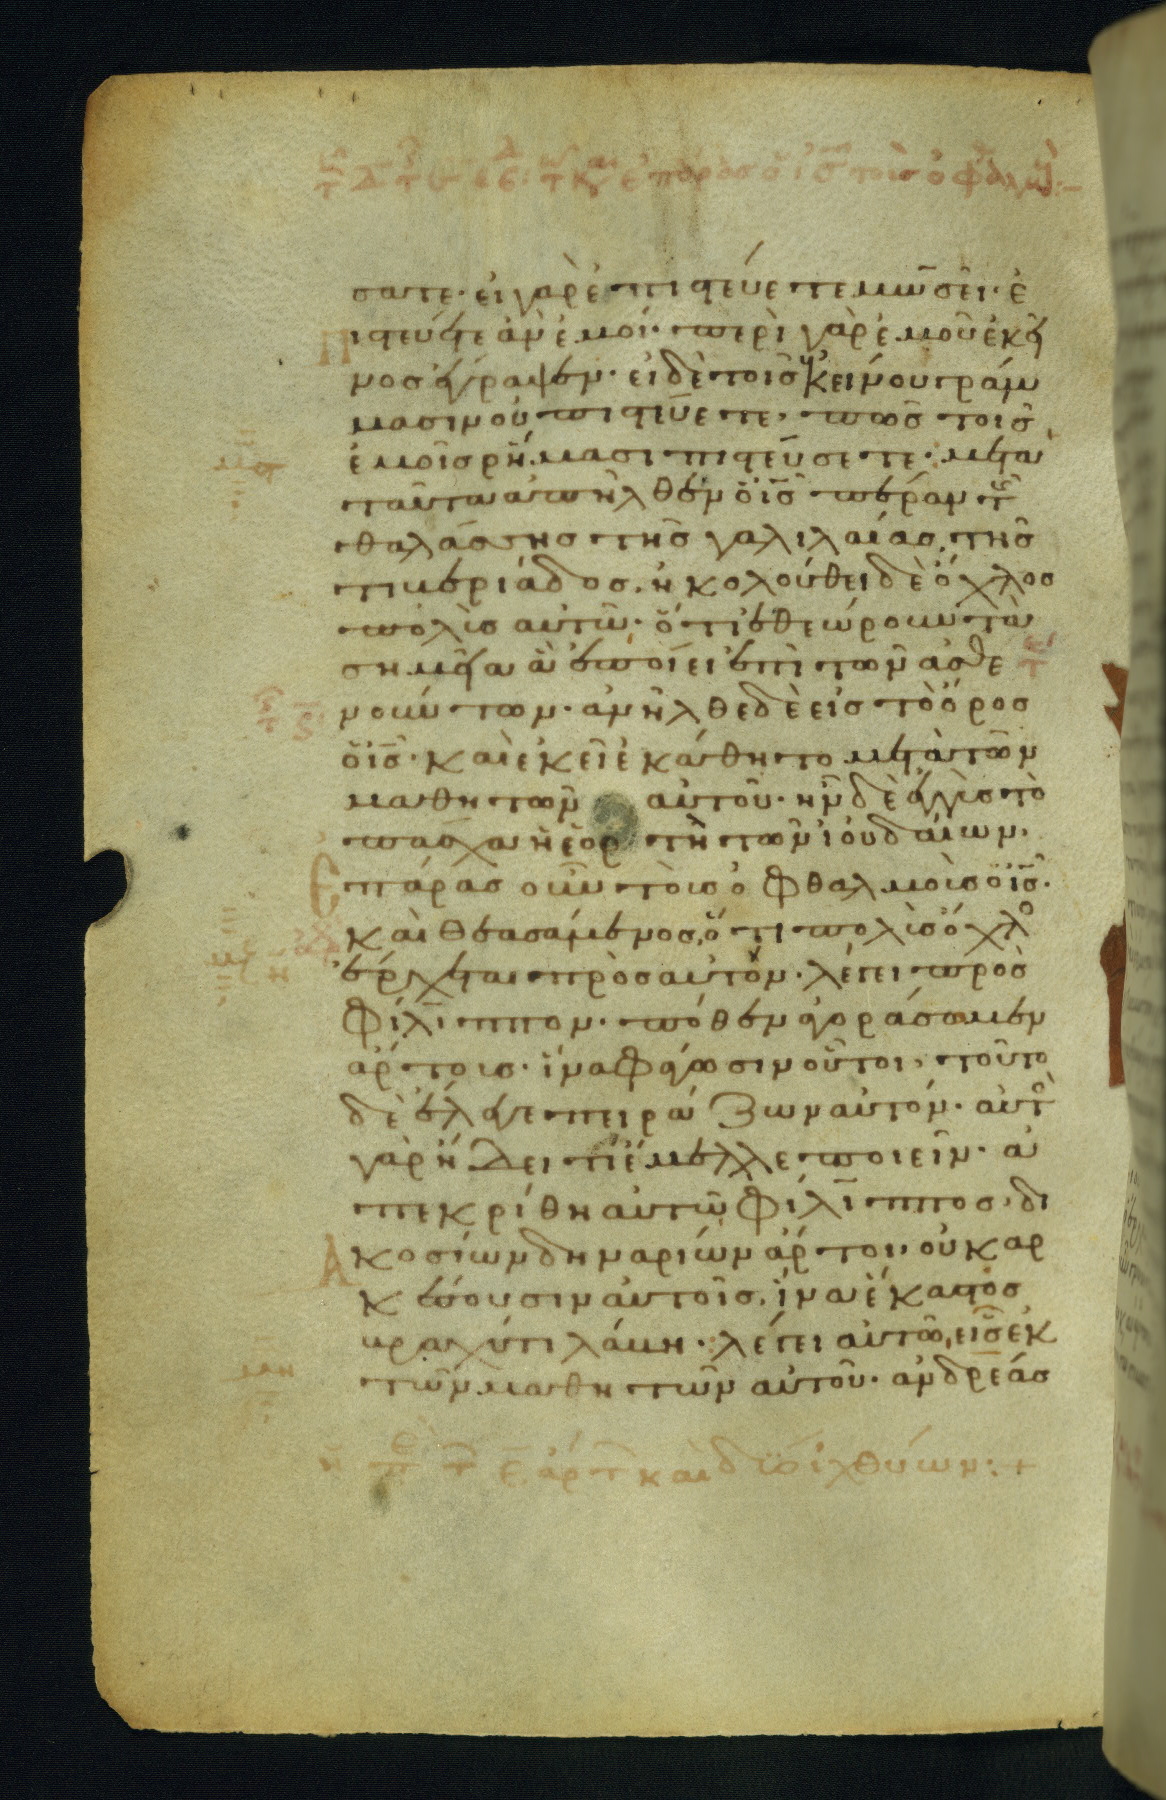 σατε· εἰ γὰρ ἐπιστεύετε μωσεῖ· ἐ
πιστεύετε ἂν ἐμοί· περὶ γὰρ ἐμοῦ ἐκεῖ
νος ἔγραψεν· εἰ δὲ τοῖς ἐκείνου γράμ
μασιν οὐ πιστεύετε, πῶς τοῖς
ἐμοῖς ῥήμασι πιστεύσετε· μετὰ
ταῦτα ἀπῆλθεν ὁ ις πέραν τῆς
θαλάσσης τῆς γαλιλαίας, τῆς
τιβεριάδος· ἠκολούθει δὲ ὄχλος
πολὺς αὐτῶ· ὅτι ἐθεώρουν τὰ
σημεῖα ἃ ἐποίει ἐπὶ τῶν ἀσθε
νούντων· ἀνῆλθε δὲ εἰς τὸ ὄρος
ὁ ις· καὶ ἐκεῖ ἐκάθητο μετὰ τῶν
μαθητῶν αὐτοῦ· ἦν δὲ ἐγγὺς τὸ
πάσχα ἡ ἑορτὴ τῶν ἰουδαίων·
Ἐπάρας οὖν τοὺς ὀφθαλμοὺς ὁ ις·
καὶ θεασάμενος, ὅτι πολὺς ὄχλος
ἔρχεται πρὸς αὐτὸν· λέγει πρὸς
Φίλιππον· πόθεν ἀγοράσωμεν
ἄρτους· ἵνα φάγωσιν οὗτοι, τοῦτο
δὲ ἔλεγε πειράζων αὐτόν· αὐτὸς
γὰρ ἤδει τί ἔμελλε ποιεῖν· ἀ
πεκρίθη αὐτῶ Φίλιππος· δι
Ακοσίων δηναρίων ἄρτοι, οὐκ ἀρ
κέσουσιν αὐτοῖς, ἵνα ἕκαστος
βραχύ τι λάβη· λέγει αὐτῶ, εἷς ἐκ
τῶν μαθητῶν αὐτοῦ· ἀνδρέας
ε ἄρτ καὶ δύο ἰχθύων: +